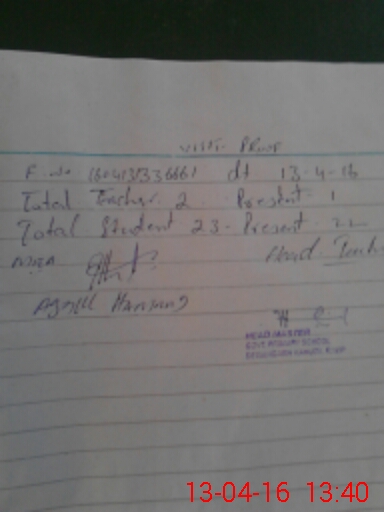 VISIT PROOF
F. No 160413336661 dt 13-4-16
Total Teacher 2 Present 1
Total Student 23 - Present 22
Head Teach
HEAD MASTER
GOVT PRIMARY SCHOOL
13-04-16 13:40